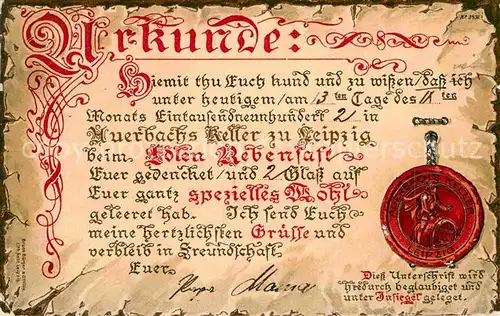 Urkunde:
Hiemit thu Euch kund und zu wißen/daß ich
unter heutigem/am 13ten Tage des IXten
Monats Eintausendneunhundert 21 in
Auerbachs Keller zu Leipzig
beim Edlen Rebensaft
Euer gedencket/und 2 Glaß auf
Euer gantz spezielles Wohl
geleeret hab. Ich send Euch
meine hertzlichsten Grüße und
verbleib in Freundschaft
Euer
Dieß Unterschrift wird
hiedurch beglaubiget und
unter Insiegel geleget.